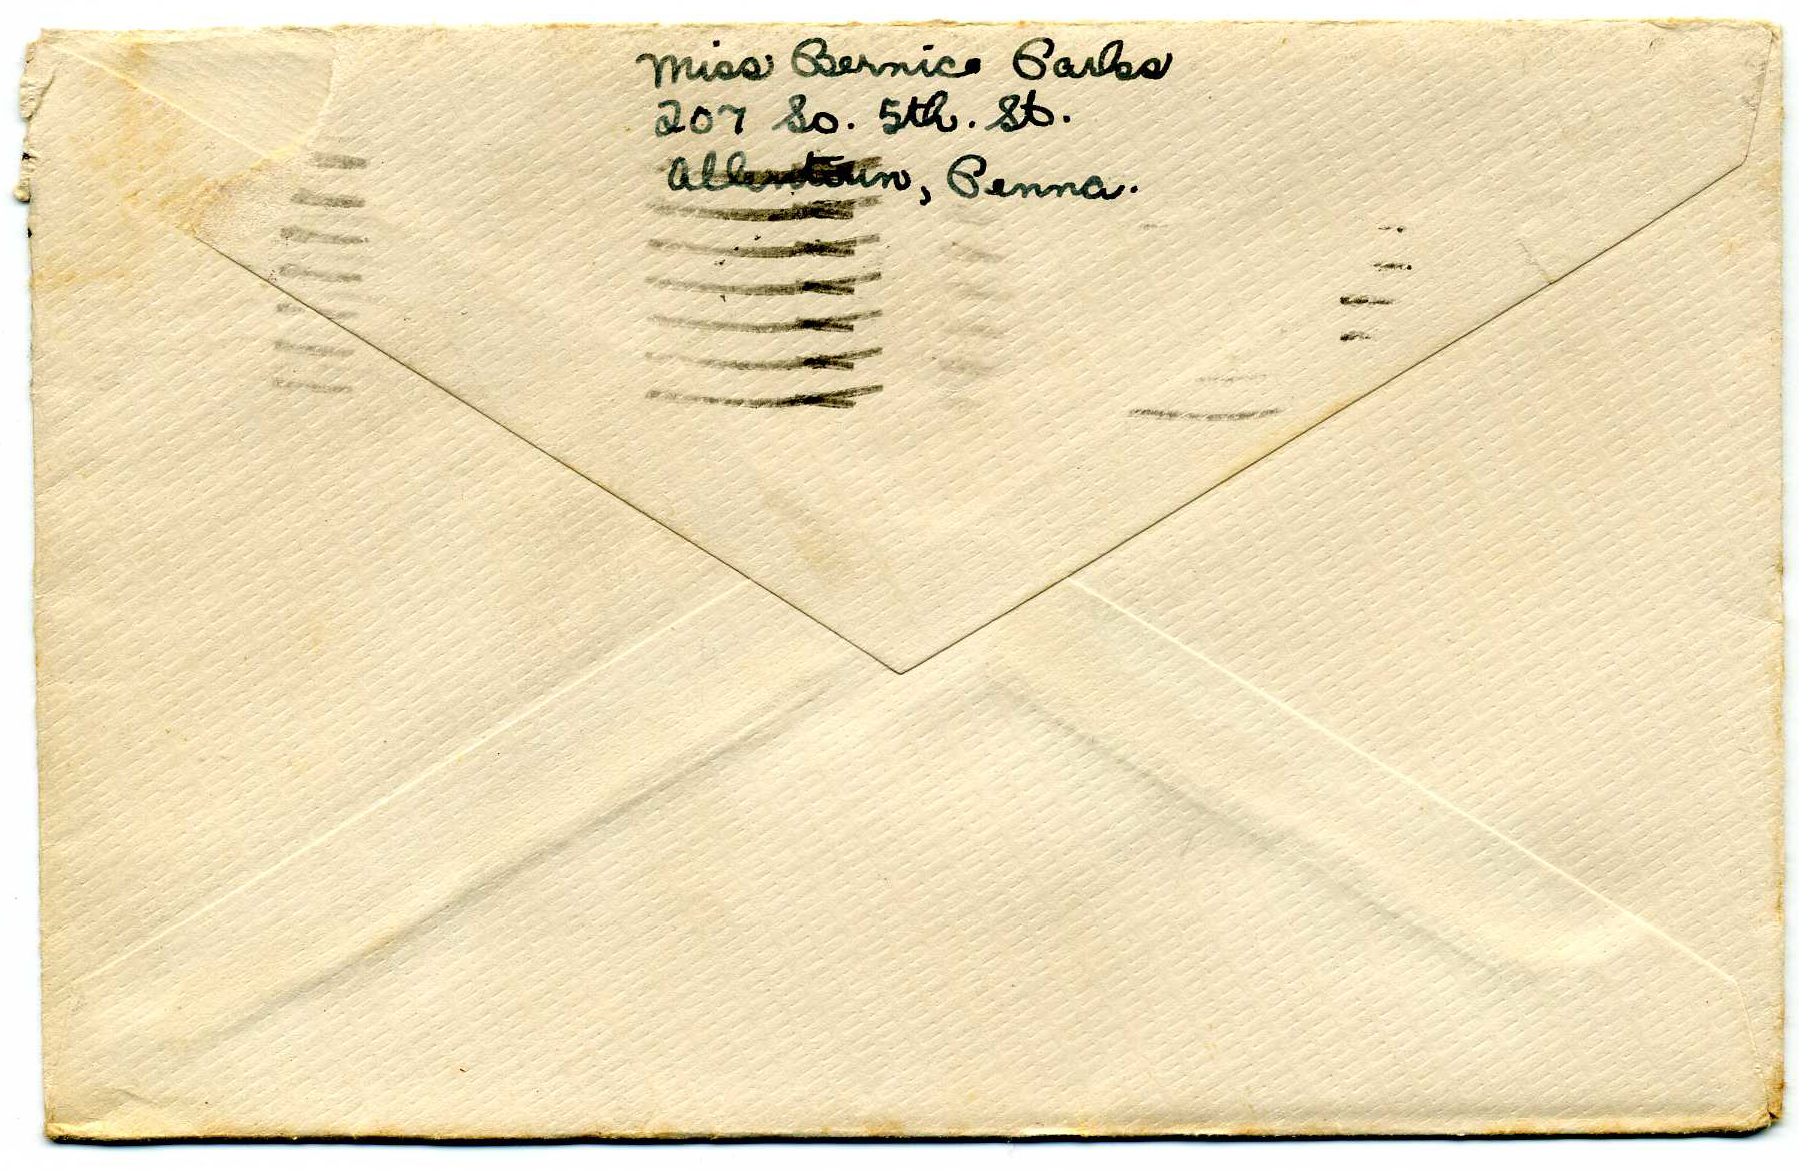 Miss Bernice Parks
207 So. 5th. St.
Allentown, Penna.